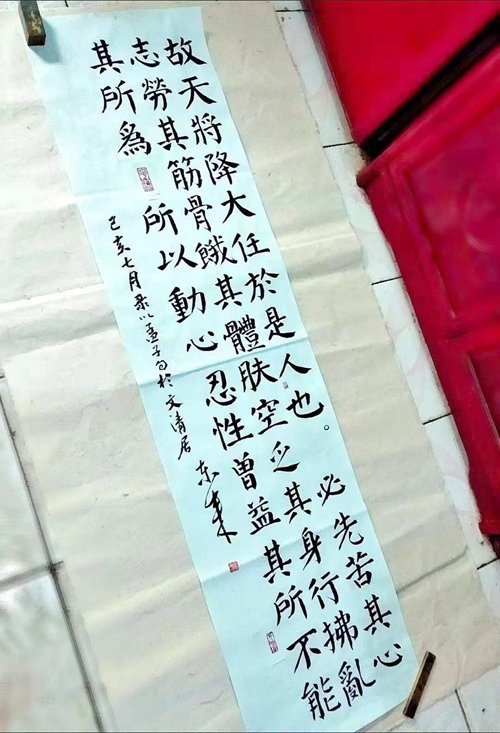 故天將降大任於是人也。必先苦其心
志勞其筋骨餓其體肤空乏其身行拂亂
其所爲所以動心忍性曾益其所不能
己亥七月录以孟子句於文清居